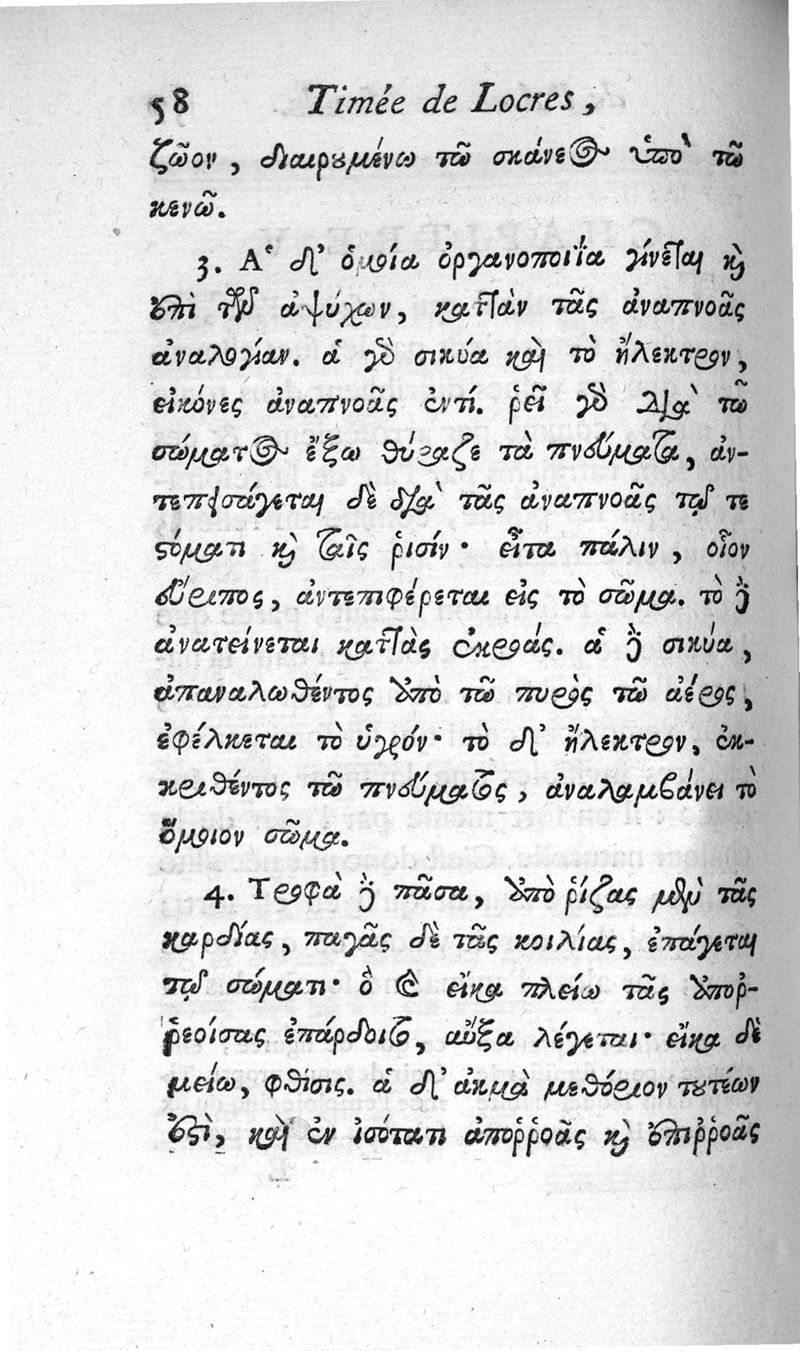 58 Timée de Locres,
ζῶον, διαιρουμένω τῶ σκάνεος ὑπὸ τῶ
κενῶ.
3. Ἁ δ' ὁμοία ὀργανοποιΐα γίνεται καὶ
ἐπὶ τῶν ἀψύχων, καττὰν τᾶς ἀναπνοᾶς
ἀναλογίαν. ἁ γὰρ σικύα καὶ τὸ ἤλεκτρον,
εἰκόνες ἀναπνοᾶς ἐντί. ῥεῖ γὰρ διὰ τῶ
σώματος ἔξω θύραζε τὰ πνεύματα, ἀν-
τεπεισάγεται δὲ διὰ τᾶς ἀναπνοᾶς τῷ τε
στόματι καὶ ταῖς ῥισίν· εἶτα πάλιν, οἷον
εὔριπος, ἀντεπιφέρεται εἰς τὸ σῶμα. τὸ δὲ
ἀνατείνεται καττὰς ἐκροάς. ἁ δὲ σικύα,
ἀπαναλωθέντος ὑπὸ τῶ πυρὸς τῶ ἀέρος,
ἐφέλκεται τὸ ὑγρόν· τὸ δ' ἤλεκτρον, ἐκ-
κριθέντος τῶ πνεύματος, ἀναλαμβάνει τὸ
ὅμοιον σῶμα.
4. Τροφὰ δὲ πᾶσα, ἀπὸ ῥίζας μὲν τᾶς
καρδίας, παγᾶς δὲ τᾶς κοιλίας, ἐπάγεται
τῷ σώματι· ὃ καὶ εἴκα πλείω τᾶς ἀποῤ-
ῥεοίσας ἐπάρδοιτο, αὔξα λέγεται· εἴκα δὲ
μείω, φθίσις. ἁ δ' ἀκμὰ μεθόριον τουτέων
ἐστὶ, καὶ ἐν ἰσότατι ἀποῤῥοᾶς καὶ ἐπιῤῥοᾶς